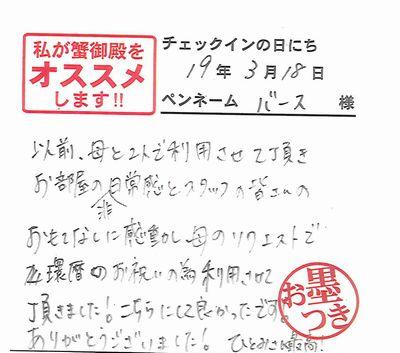 私が蟹御殿を
オススメ
します!!
チェックインの日にち
19年 3月 18日
ペンネーム バース 様
以前、母と2人で利用させて頂き
お部屋の非日常感とスタッフの皆さんの
おもてなしに感動し母のリクエストで
環暦のお祝いの為利用させて
頂きました!こちらにして良かったです。
ありがとうございました! 最高!
お墨つき